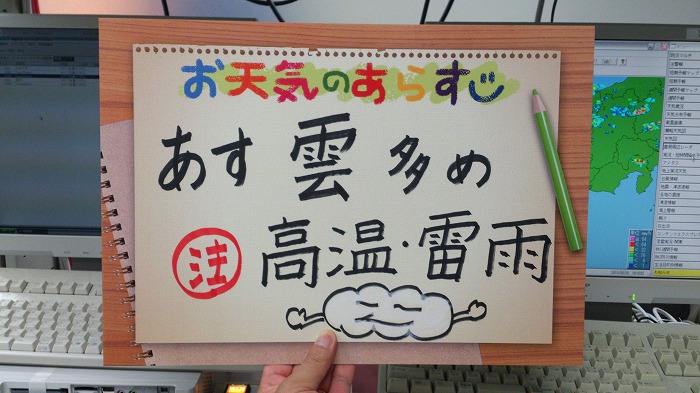 お天気のあらすじ
あす 雲 多め
注 高温・雷雨